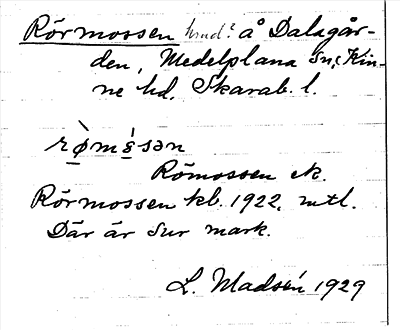 Rörmossen hmd? å Dalagår-
den, Medelplana sn, Kin-
ne hd. Skarab. l.
rø̀mèsən
Römossen ek.
Rörmossen kb. 1922. mtl.
Där är sur mark.
L. Madsén 1929